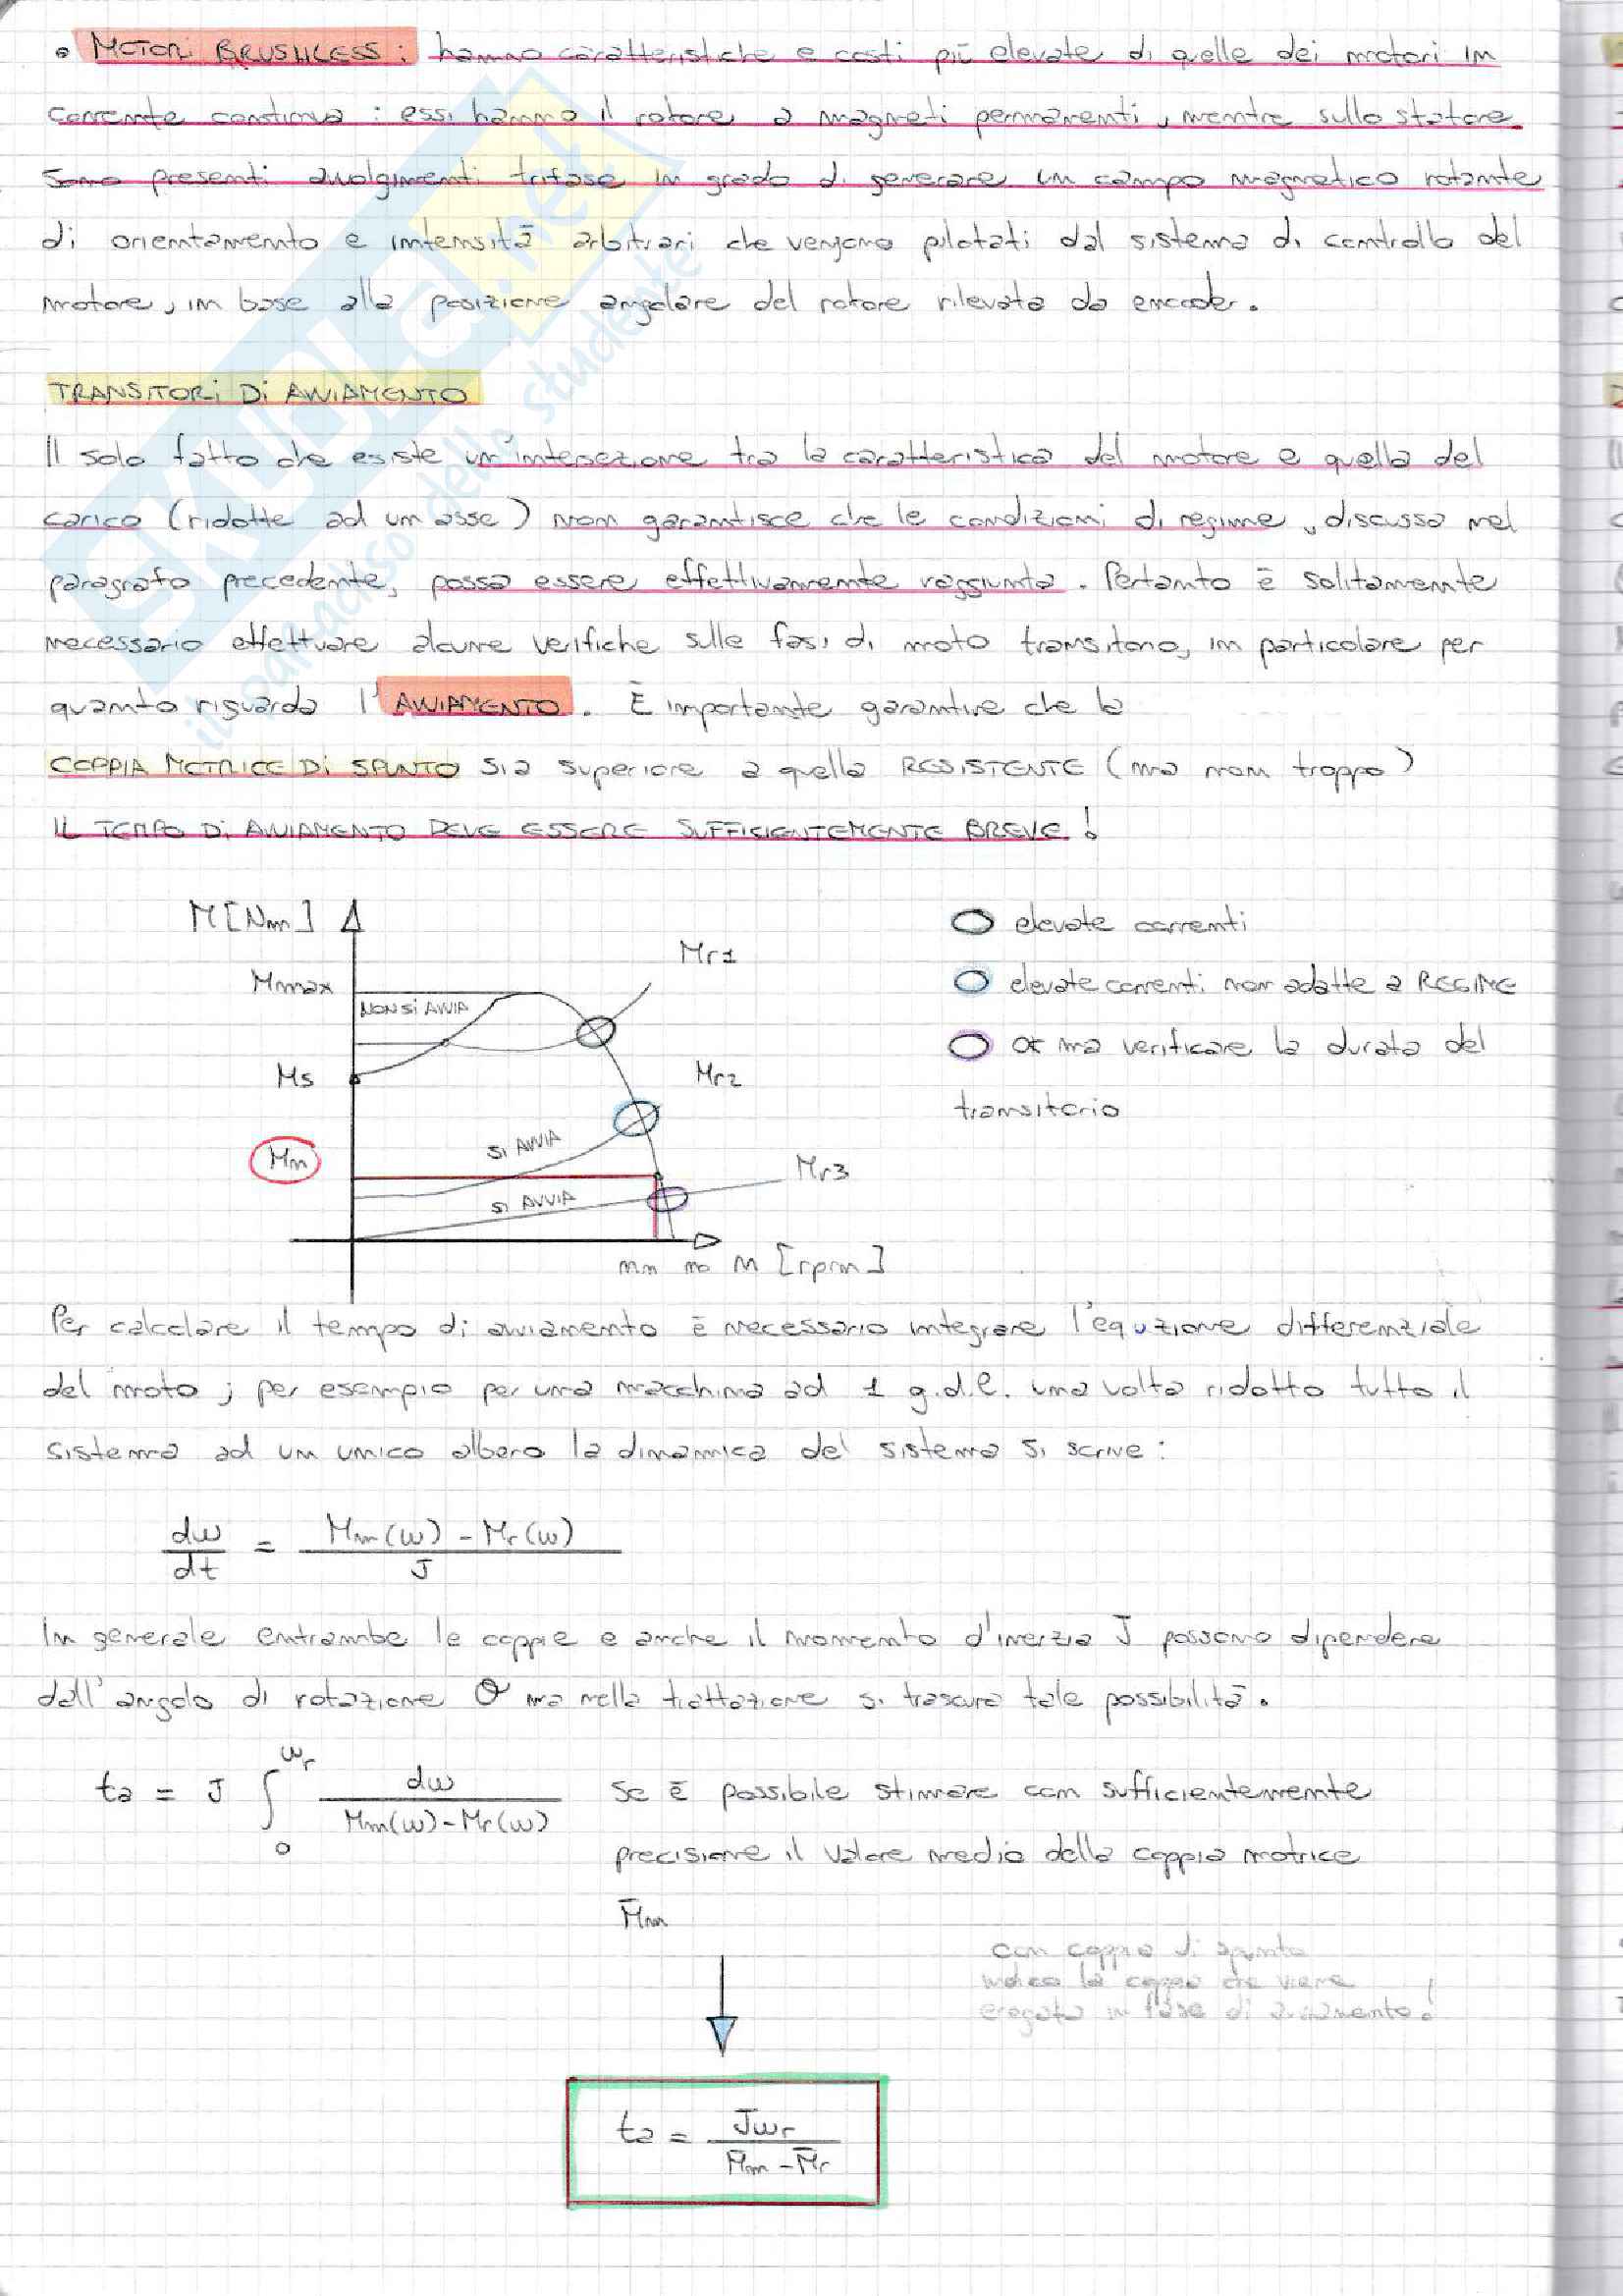 • MOTORI BRUSHLESS: hanno caratteristiche e costi più elevate di quelle dei motori in
corrente continua: essi hanno il rotore a magneti permanenti, mentre sullo statore
sono presenti avvolgimenti trifase in grado di generare un campo magnetico rotante
di orientamento e intensità arbitrari che vengono pilotati dal sistema di controllo del
motore, in base alla posizione angolare del rotore rilevata da encoder.
TRANSITORI DI AVVIAMENTO
Il solo fatto che esiste un'intersezione tra la caratteristica del motore e quella del
carico (ridotte ad un asse) non garantisce che le condizioni di regime, discussa nel
paragrafo precedente, possa essere effettivamente raggiunta. Pertanto è solitamente
necessario effettuare alcune verifiche sulle fasi di moto transitorio, in particolare per
quanto riguarda l'AVVIAMENTO. È importante garantire che la
COPPIA MOTRICE DI SPUNTO sia superiore a quella RESISTENTE (ma non troppo)
IL TEMPO DI AVVIAMENTO DEVE ESSERE SUFFICIENTEMENTE BREVE!
M [Nm]
Mr1
elevate correnti
Mmax
NON SI AVVIA
elevate correnti non adatte a REGIME
ok ma verificare la durata del
transitorio
Ms
Mr2
SI AVVIA
Mn
Mr3
SI AVVIA
nn no n [rpm]
Per calcolare il tempo di avviamento è necessario integrare l'equzione differenziale
del moto; per esempio per una macchina ad 1 g.d.l. una volta ridotto tutto il
sistema ad un unico albero la dinamica del sistema si scrive:
dω/dt = (Mm(ω) - Mr(ω))/J
In generale entrambe le coppie e anche il momento d'inerzia J possono dipendere
dall'angolo di rotazione θ ma nella trattazione si trascura tale possibilità.
ta = J ∫₀^ωr dω/(Mm(ω)-Mr(ω)) Se è possibile stimare con sufficientemente
precisione il valore medio della coppia motrice
M̄m
con coppia di spunto
indico la coppia che viene
erogata in fase di avviamento!
ta = Jωr/(M̄m - M̄r)
SKUOLA.net
il paradiso dello studente